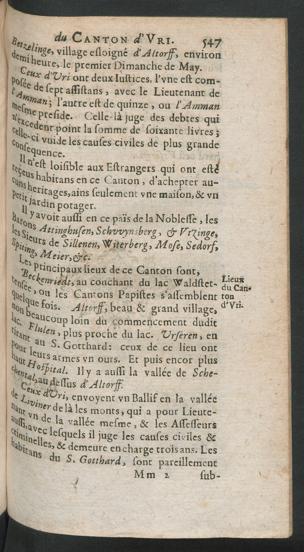 du CANTON d'VRI. 547
Betzelinge, village esloigné d'Altorff, environ
demi heure, le premier Dimanche de May.
Ceux d'Vri ont deux Iustices, l'vne est com-
posée de sept assistans, avec le Lieutenant de
l'Amman; l'autre est de quinze, ou l'Amman
mesme preside. Celle-là juge des debtes qui
n'excedent point la somme de soixante livres;
celle-ci vuide les causes civiles de plus grande
consequence.
Il n'est loisible aux Estrangers qui ont esté
receus habitans en ce Canton, d'achepter au-
cuns heritages, ains seulement vne maison, & vn
petit jardin potager.
Il y avoit aussi en ce païs de la Noblesse, les
Barons Attinghusen, Schvvynsberg, & Vrzinge,
les Sieurs de Sillenen, Witerberg, Mose, Sedorf,
Spiring, Meier, &c.
Les principaux lieux de ce Canton sont,
Beckenriedt, au couchant du lac Waldstet-
tensee, ou les Cantons Papistes s'assemblent
quelque fois. Altorff, beau & grand village,
non beaucoup loin du commencement dudit
lac. Fluelen, plus proche du lac. Vrseren, en
tirant au S. Gotthard: ceux de ce lieu ont
pour leurs armes vn ours. Et puis encor plus
haut Hospital. Il y a aussi la vallée de Sche-
chental, au dessus d'Altorff.
Ceux d'Vri, envoyent vn Ballif en la vallée
de Liviner de là les monts, qui a pour Lieute-
nant vn de la vallée mesme, & les Assesseurs
aussi, avec lesquels il juge les causes civiles &
criminelles, & demeure en charge trois ans. Les
habitans du S. Gotthard, sont pareillement
Mm 2 sub-
Lieux
du Can-
ton
d'Vri.